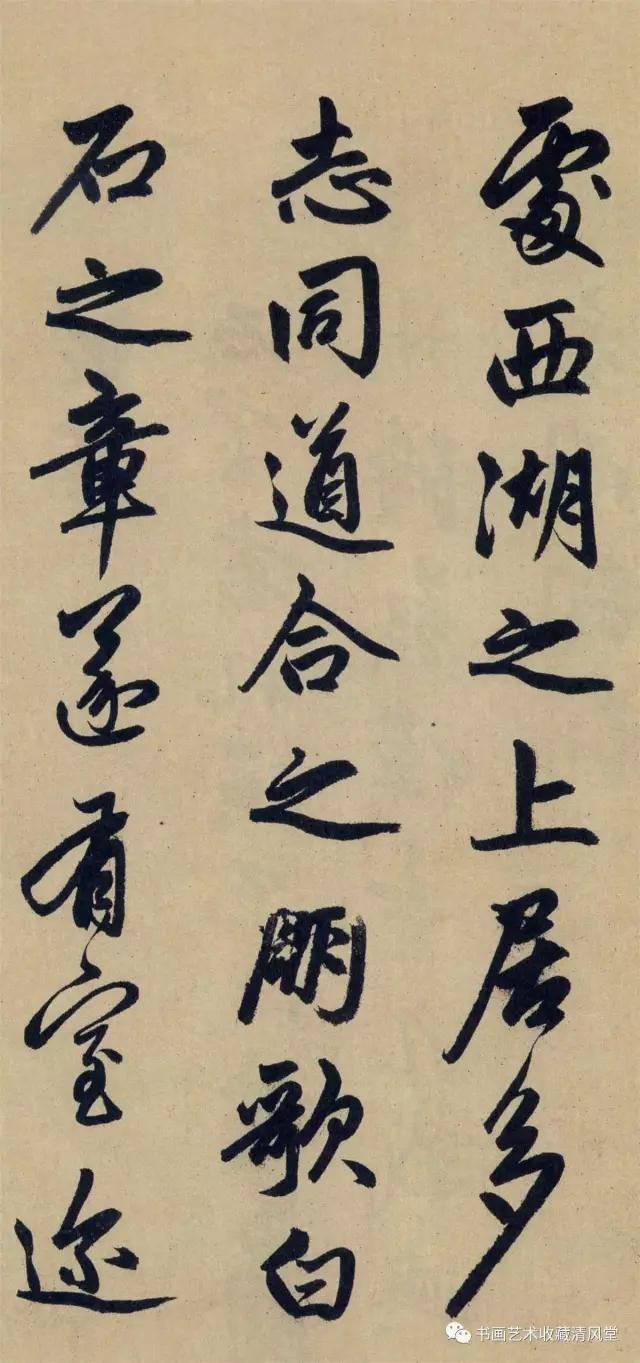 處西湖之上居多
志同道合之朋歌白
石之章遂有室迩
书画艺术收藏清风堂